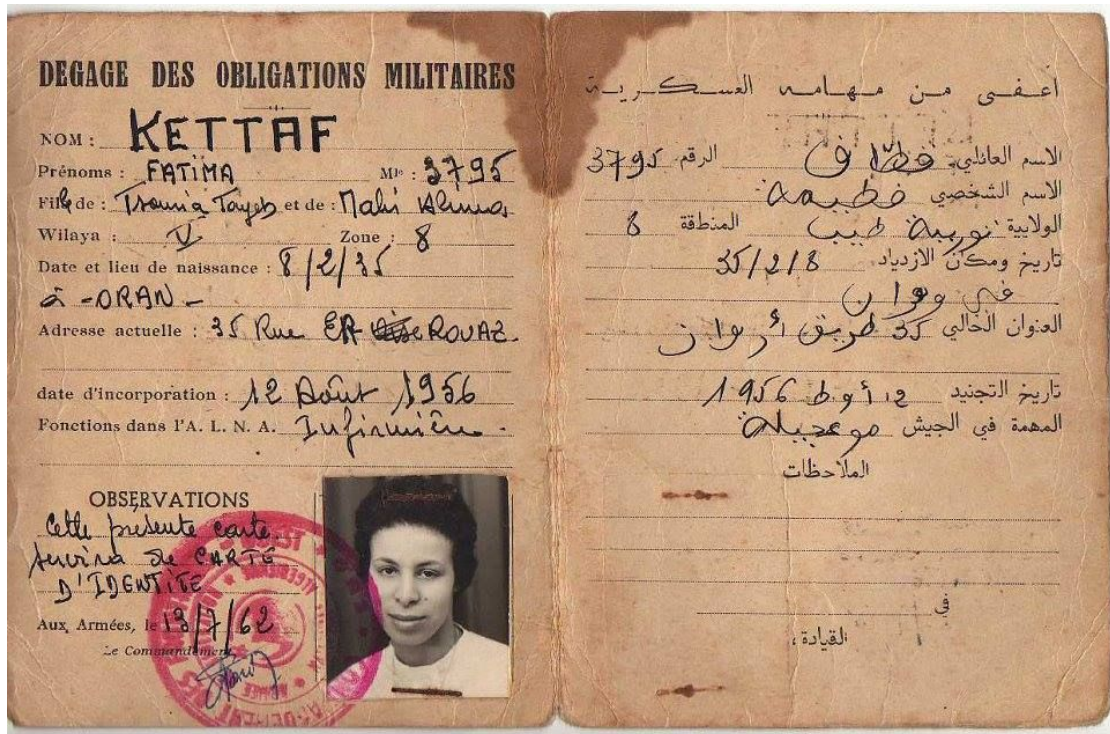 DEGAGE DES OBLIGATIONS MILITAIRES
NOM : KETTAF
Prénoms : FATIMA Mle : 3795
Fille de : Tayeb et de : Mahi
Wilaya : V Zone : 8
Date et lieu de naissance : 8/2/35
à - ORAN -
Adresse actuelle : 35 Rue ER ROUAZ.
date d'incorporation : 12 Août 1956
Fonctions dans l'A. L. N. A. Infirmière.
OBSERVATIONS
Cette présente carte
servira de CARTE
D'IDENTITE
Aux Armées, le 13/7/62
Le Commandement
اعفى من مهامه العسكرية
الاسم العائلي الرقم 3795
الاسم الشخصي
الولاية طيب المنطقة 8
تاريخ ومكان الازدياد 35/2/8
في وهران
العنوان الحالي 35 طريق
تاريخ التجنيد 12 أوط 1956
المهمة في الجيش
الملاحظات
في
القيادة،